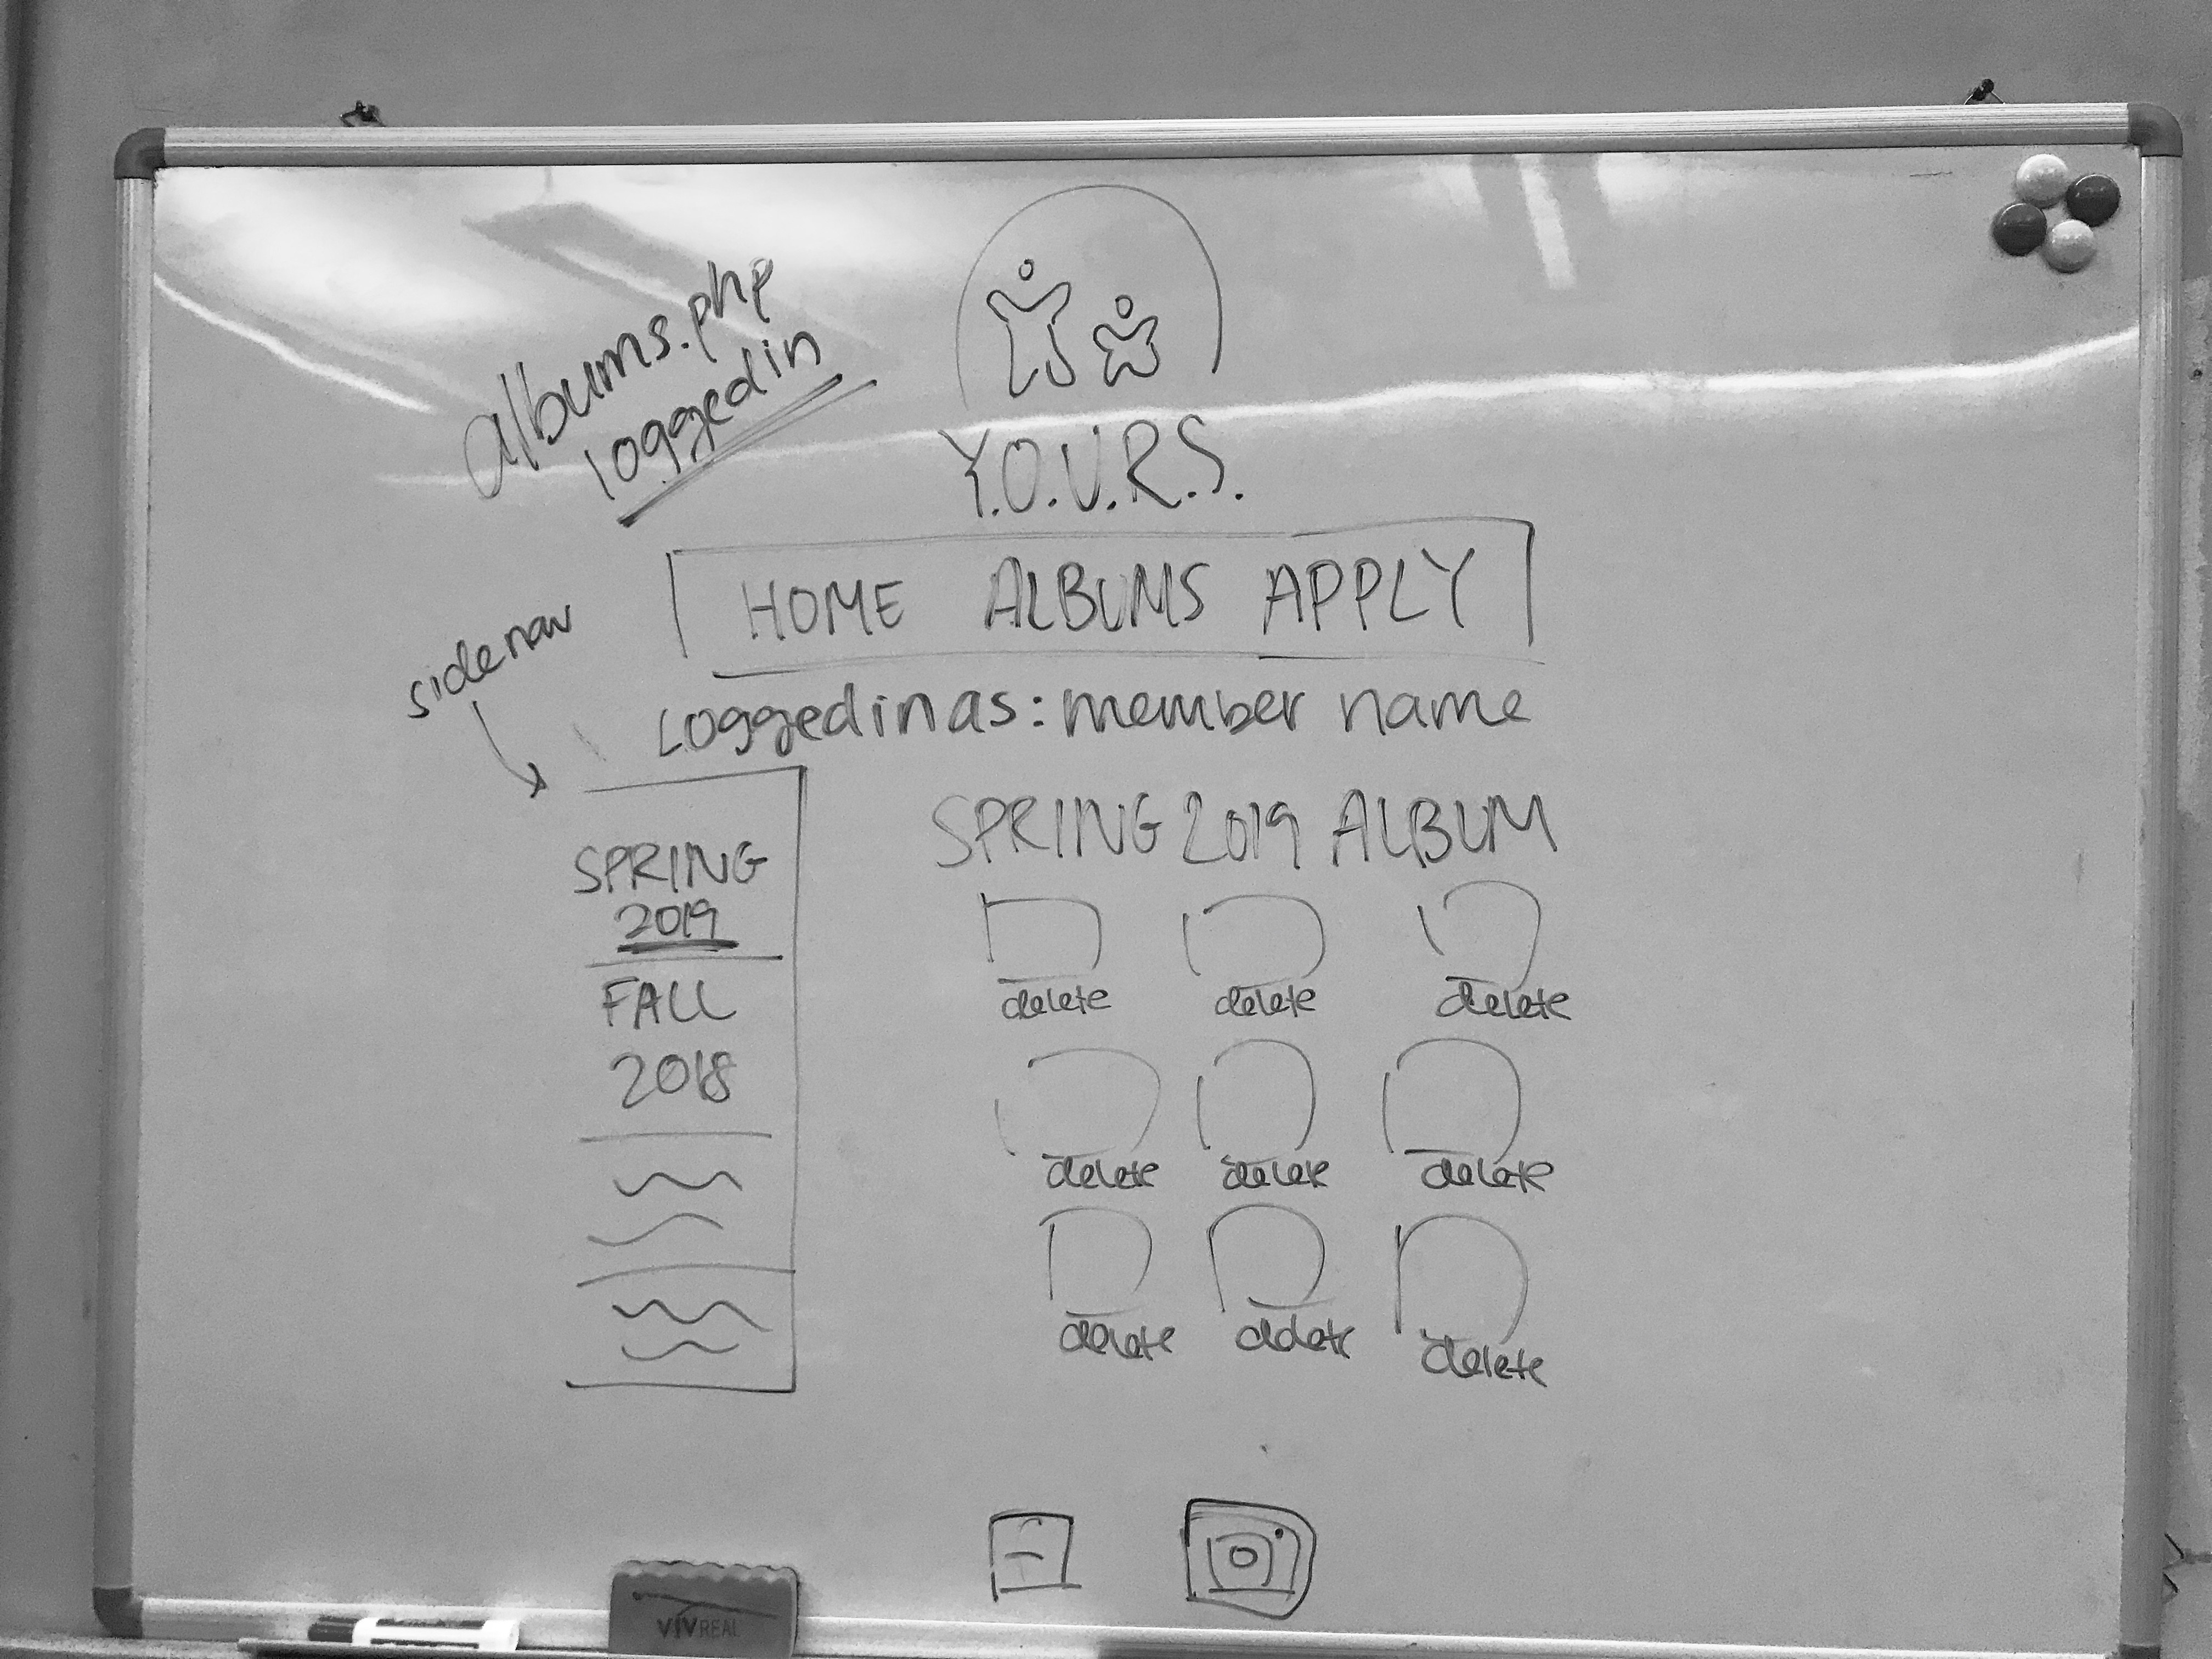 albums.php
loggedin
Y.O.U.R.S.
HOME ALBUMS APPLY
sidenav
Loggedin as: member name
SPRING
2019
FALL
2018
SPRING 2019 ALBUM
delete delete delete
delete delete delete
delete delete delete
VIVREAL